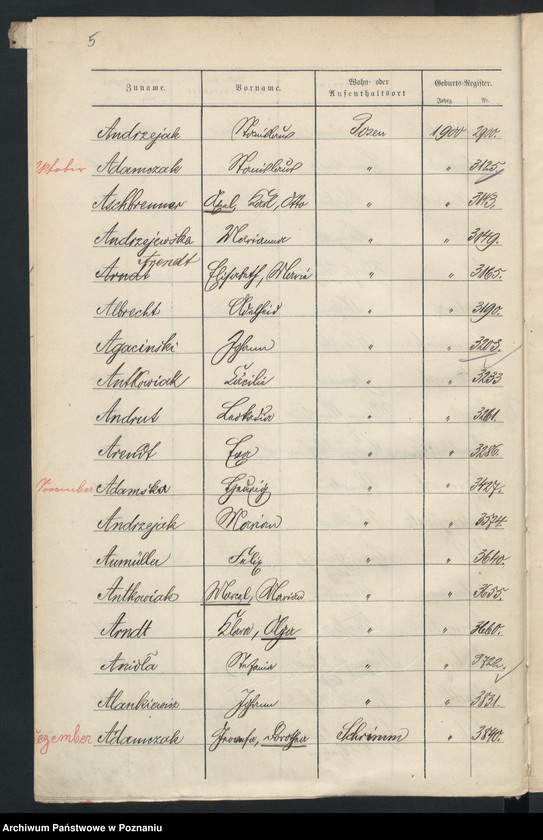 5
Zuname. Vorname. Wohn- oder Aufenthaltsort Geburts-Register.
Jahrg. Nr.
Andrzejak Stanislaus Posen 1900 2900.
Oktober Adamczak Stanislaus " " 3125.
Aschbrenner Axel, Karl, Otto " " 3143.
Andrzejewska Marianna " " 3049.
Arendt
Arndt Elisabeth, Maria " " 3165.
Albrecht Adelheid " " 3190.
Agaciński Johann " " 3203.
Antkowiak Cäcilie " " 3233
Andrut Leokadia " " 3261.
Arendt Eva " " 3286.
November Adamska " " 3427.
Andrzejak Marian " " 3574.
Aumüller Felix " " 3640.
Antkowiak Marcel, Marian " " 3655.
Arndt Klara, Olga " " 3660.
Anioła Stefania " " 3722.
Alankiewicz Johann " " 3831.
Dezember Adamczak Dorothea Schrimm " 3840.
Archiwum Państwowe w Poznaniu